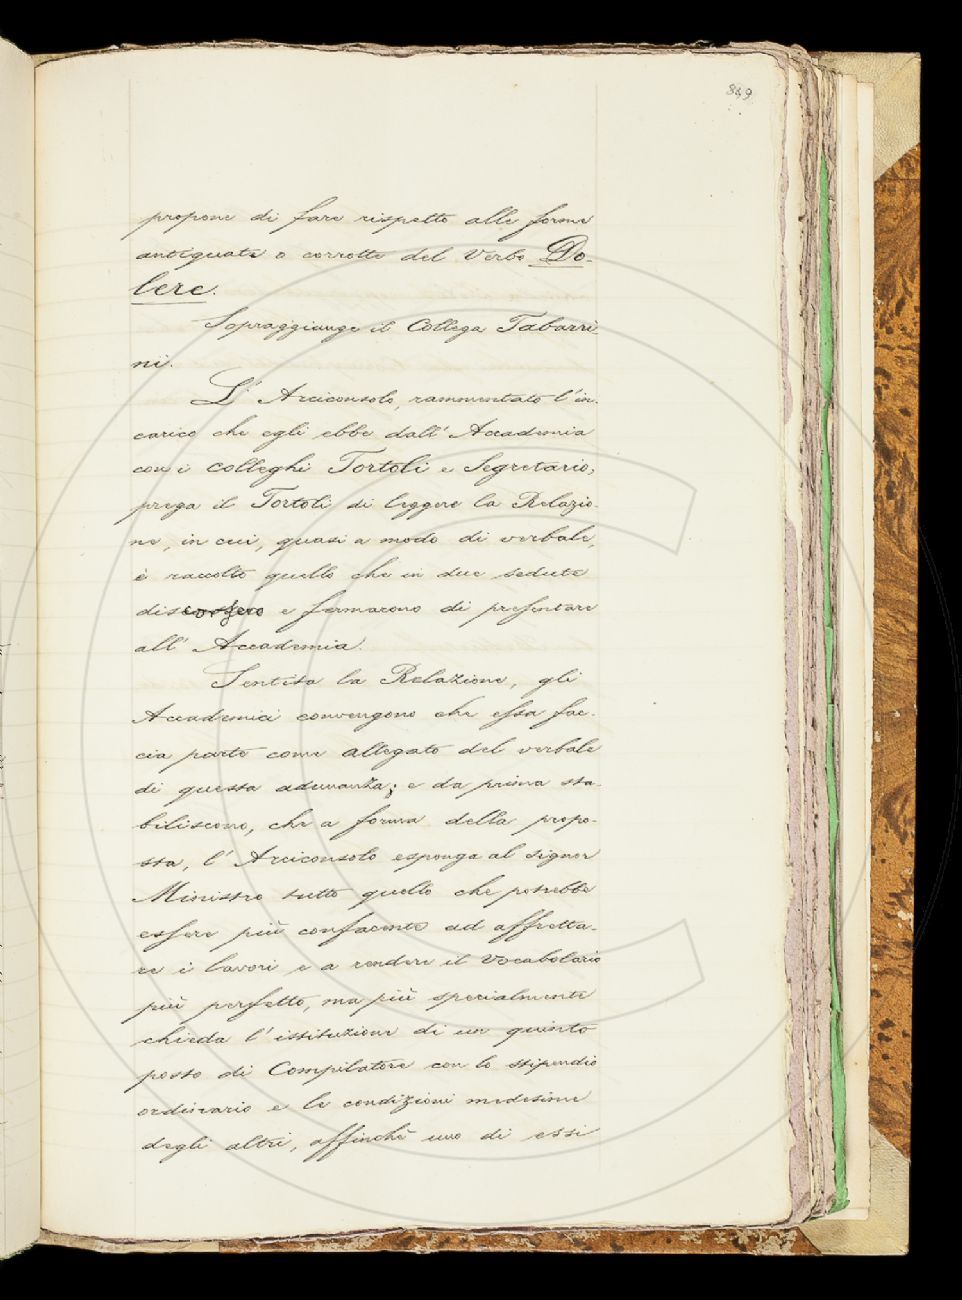 849
propone di fare rispetto alle forme
antiquate o corrotte del Verbo Do-
lere.
Sopraggiunge il Collega Tabarri-
ni.
L'Arciconsolo, rammentato l'in-
carico che egli ebbe dall'Accademia
con i colleghi Tortoli e Segretario,
prega il Tortoli di leggere la Relazio-
ne, in cui, quasi a modo di verbale,
è raccolto quello che in due sedute
discorsero e fermarono di presentare
all'Accademia.
Sentita la Relazione, gli
Accademici convengono che essa fac-
cia parte come allegato del verbale
di questa adunanza; e da prima sta-
biliscono, che a forma della propo-
sta, l'Arciconsolo esponga al signor
Ministro tutto quello che potrebbe
essere più confacente ad affretta-
re i lavori e a rendere il Vocabolario
più perfetto, ma più specialmente
chieda l'istituzione di un quinto
posto di Compilatore con lo stipendio
ordinario e le condizioni medesime
degli altri, affinchè uno di essi